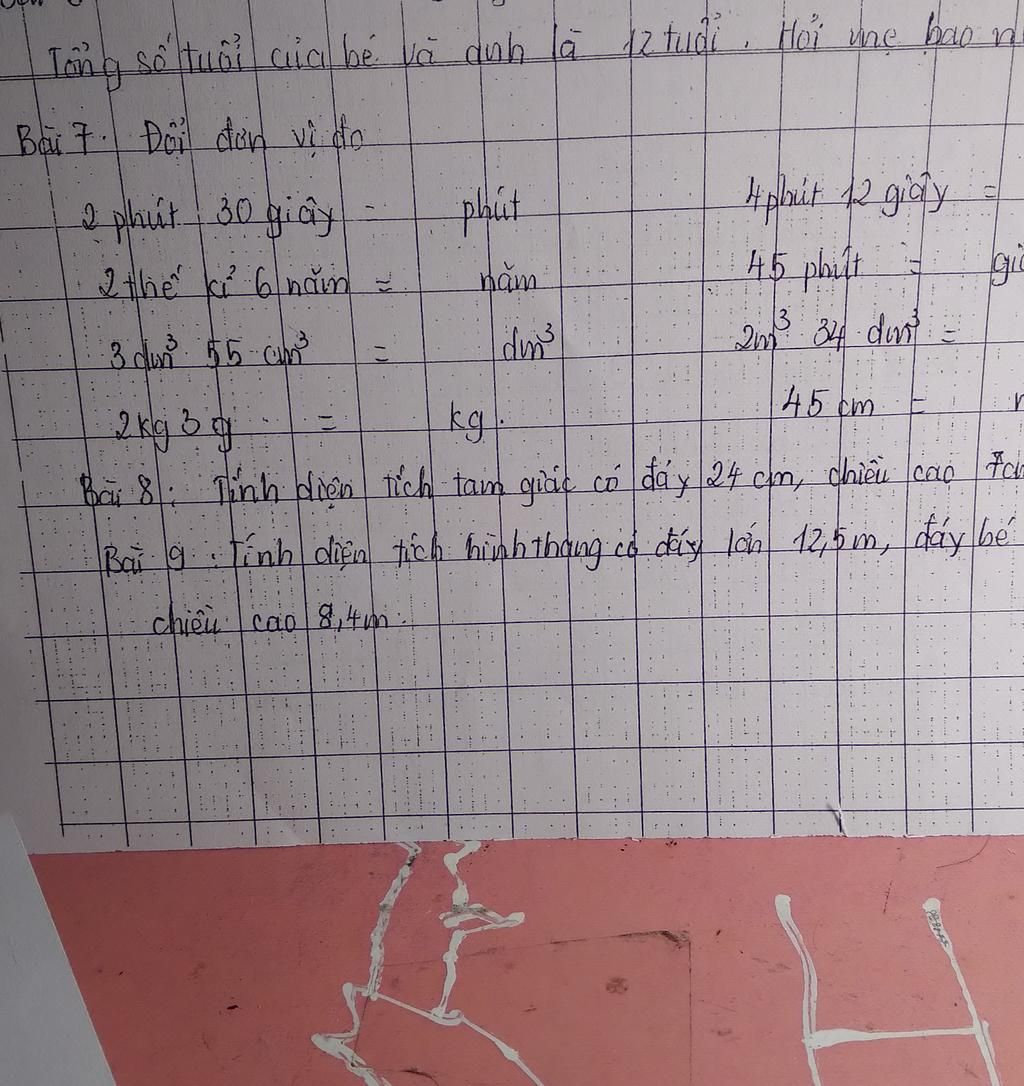 Tổng số tuổi của bé và anh là 12 tuổi. Hỏi mẹ bao
Bài 7. Đổi đơn vị đo
2 phút 30 giây = phút 4 phút 12 giây =
2 thế kỉ 6 năm = năm 45 phút = giờ
3 dm³ 55 cm³ = dm³ 2m³ 34 dm³ =
2kg 3 g = kg. 45 cm =
Bài 8: Tính diện tích tam giác có đáy 24 cm, chiều cao 7cm
Bài 9: Tính diện tích hình thang có đáy lớn 12,5m, đáy bé
chiều cao 8,4m.